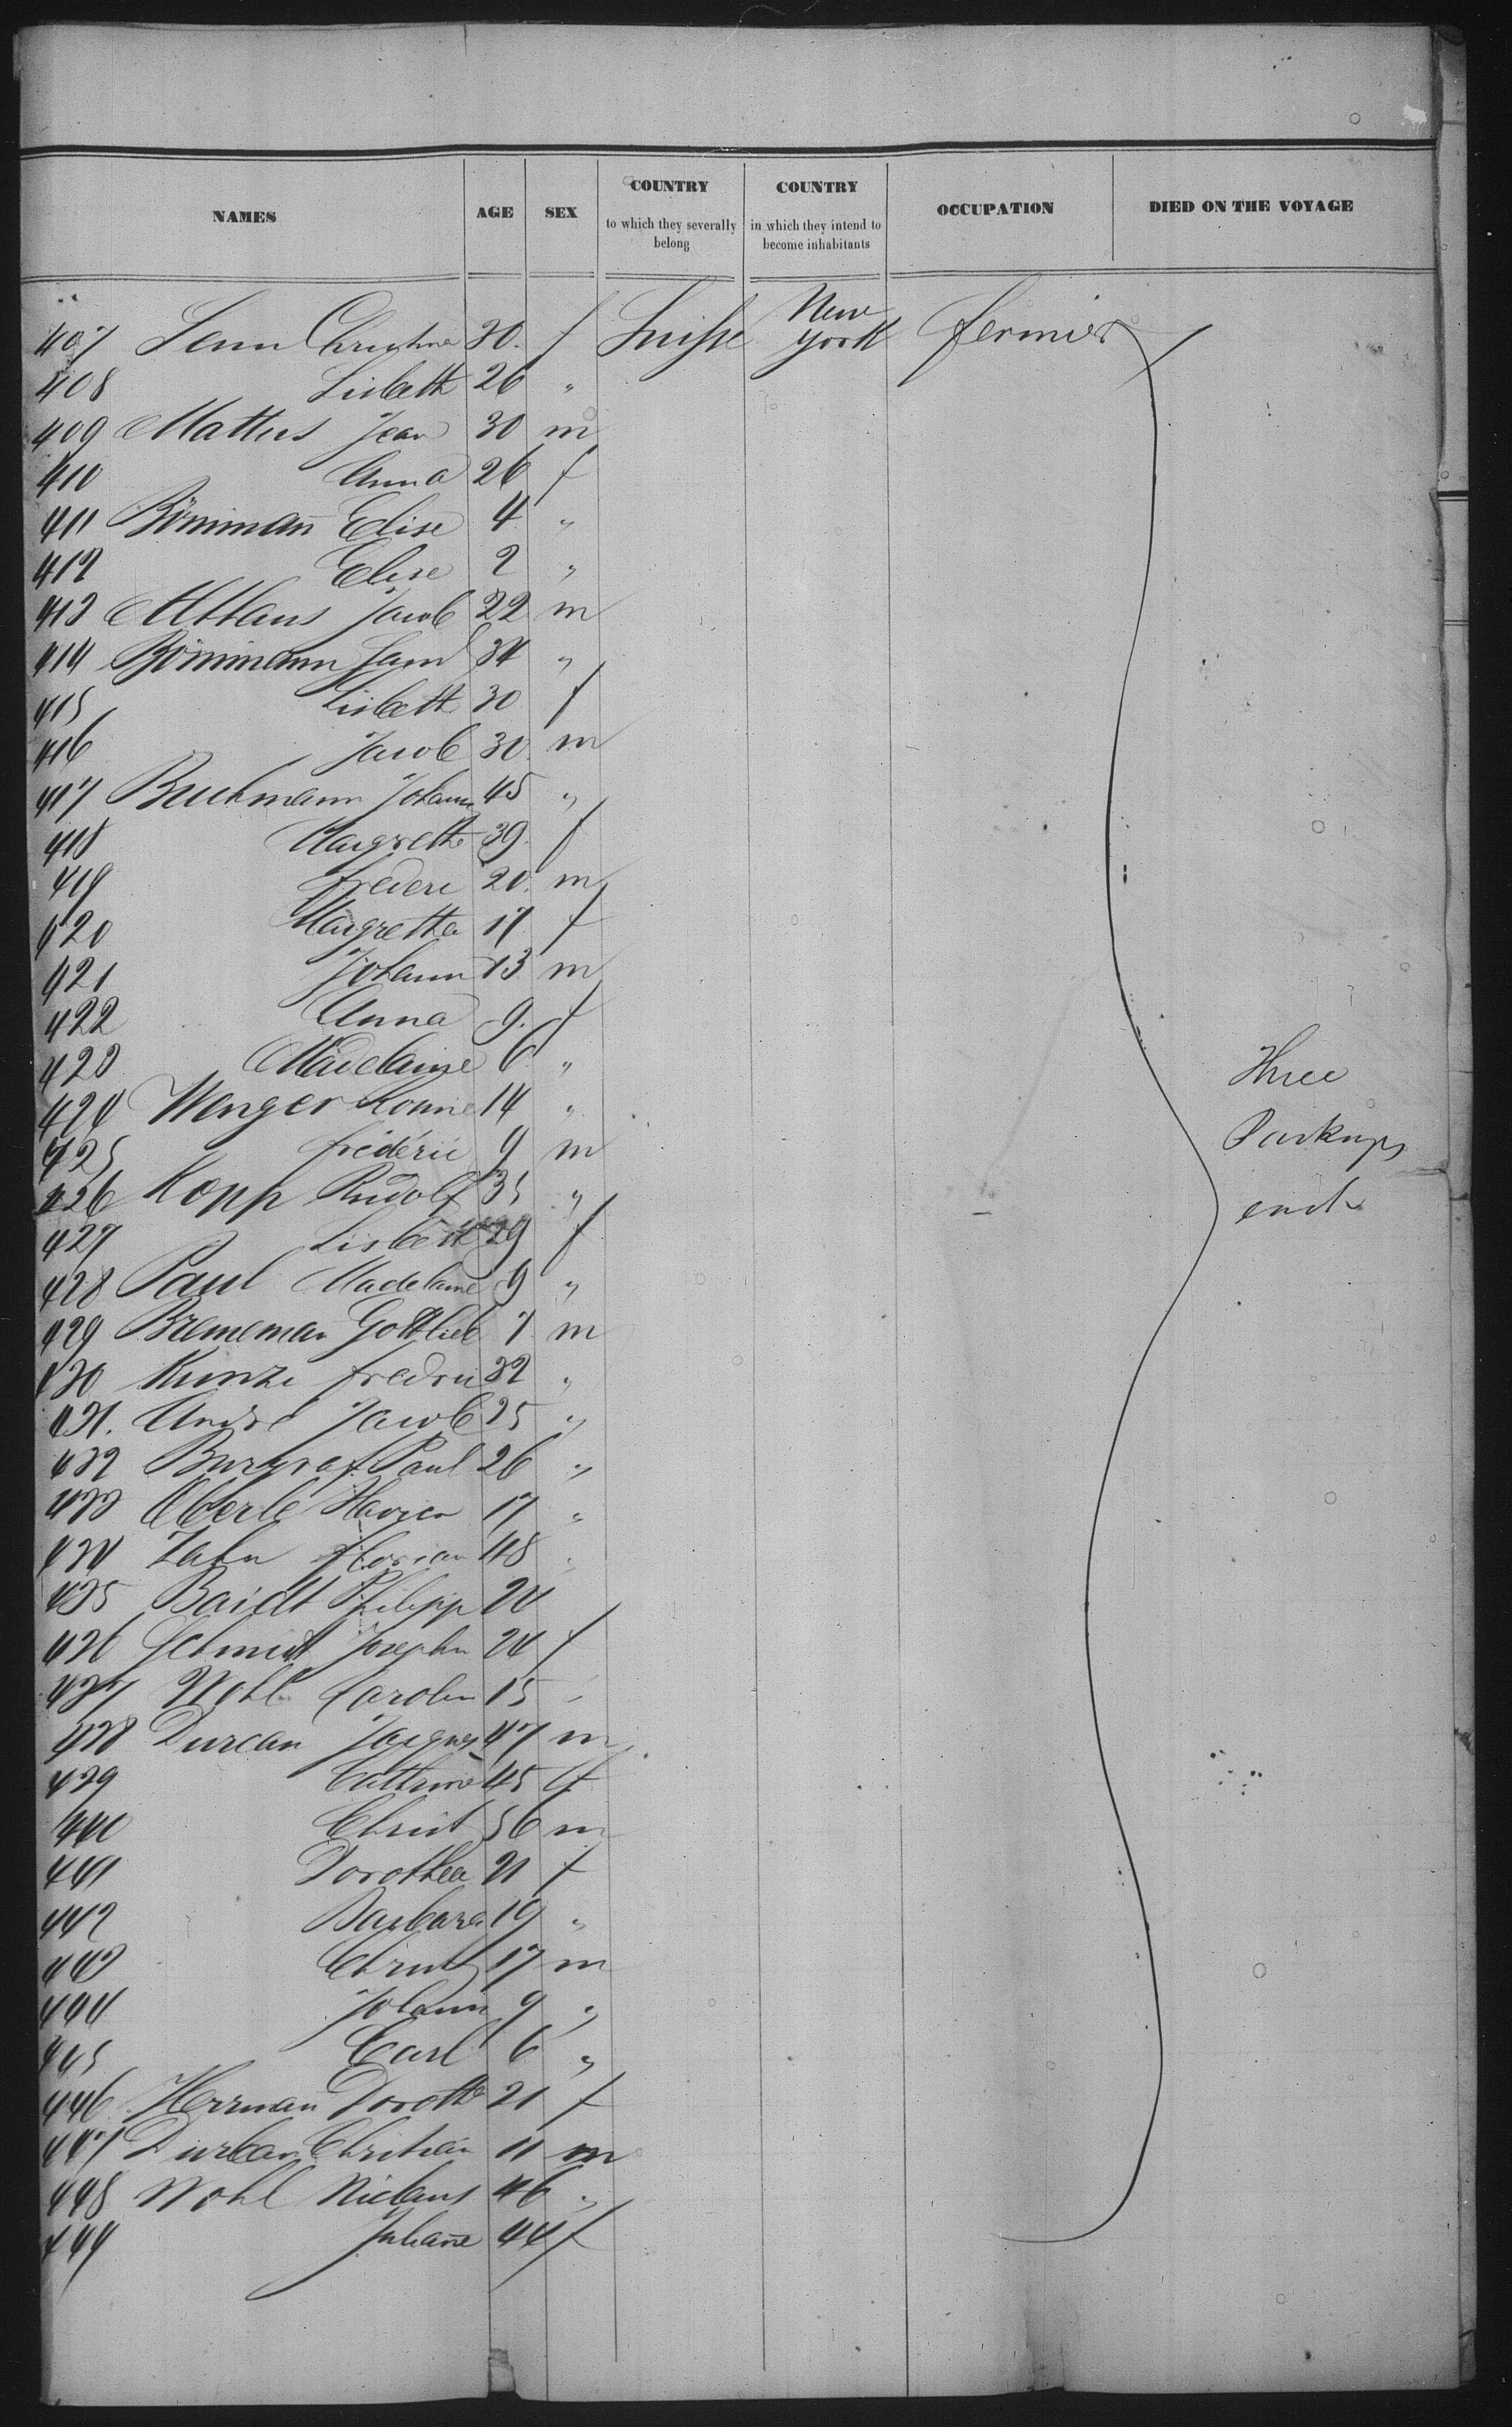 NAMES AGE SEX COUNTRY to which they severally belong COUNTRY in which they intend to become inhabitants OCCUPATION DIED ON THE VOYAGE
407 Senn Christine 30. f Suisse New York fermier
408 Lisbeth 26 "
409 Matteis Jean 30 m
410 Anna 26 f
411 Bönimañ Elise 4 "
412 Elise 2 "
413 Althaus Jacob 22 m
414 Bönimann 34 "
415 Lisbeth 30 f
416 Jacob 30. m
417 Buchmann Johann 45 "
418 Margreth 39. f
419 20. m
420 Margretha 17 f
421 Johann 13 m
422 Anna 9. f
423 Madelaine 6 "
424 Wenger 14 "
425 fréderic 9 m
426 Kopp Rudolf 35 "
427 Lisbeth 29 f
428 Paul Madelaine 9 "
429 Breneman Gottlieb 7 m
430 Kunze fredric 32 "
431. André Jacob 25 "
432 Burgraf Paul 26 "
433 Eberlé 17 "
434 Zahn florian 48 "
435 Baidt Philipp 24
436 Schmidt Josephn 24 f
437 Wohl Carolin 15 "
438 Durcan Jacques 47 m
439 Cathrine 45 f
440 Christ 56 m
441 Dorothea 21 f
442 Barbara 19 "
443 Christ 17 m
444 Johann 9 "
445 Carl 6 "
446 Herrman Doroth 21 f
447 Durban Christian 11 m
448 Wohl Niclaus 46 "
449 Juliañe 44 f
Three
Packages
each